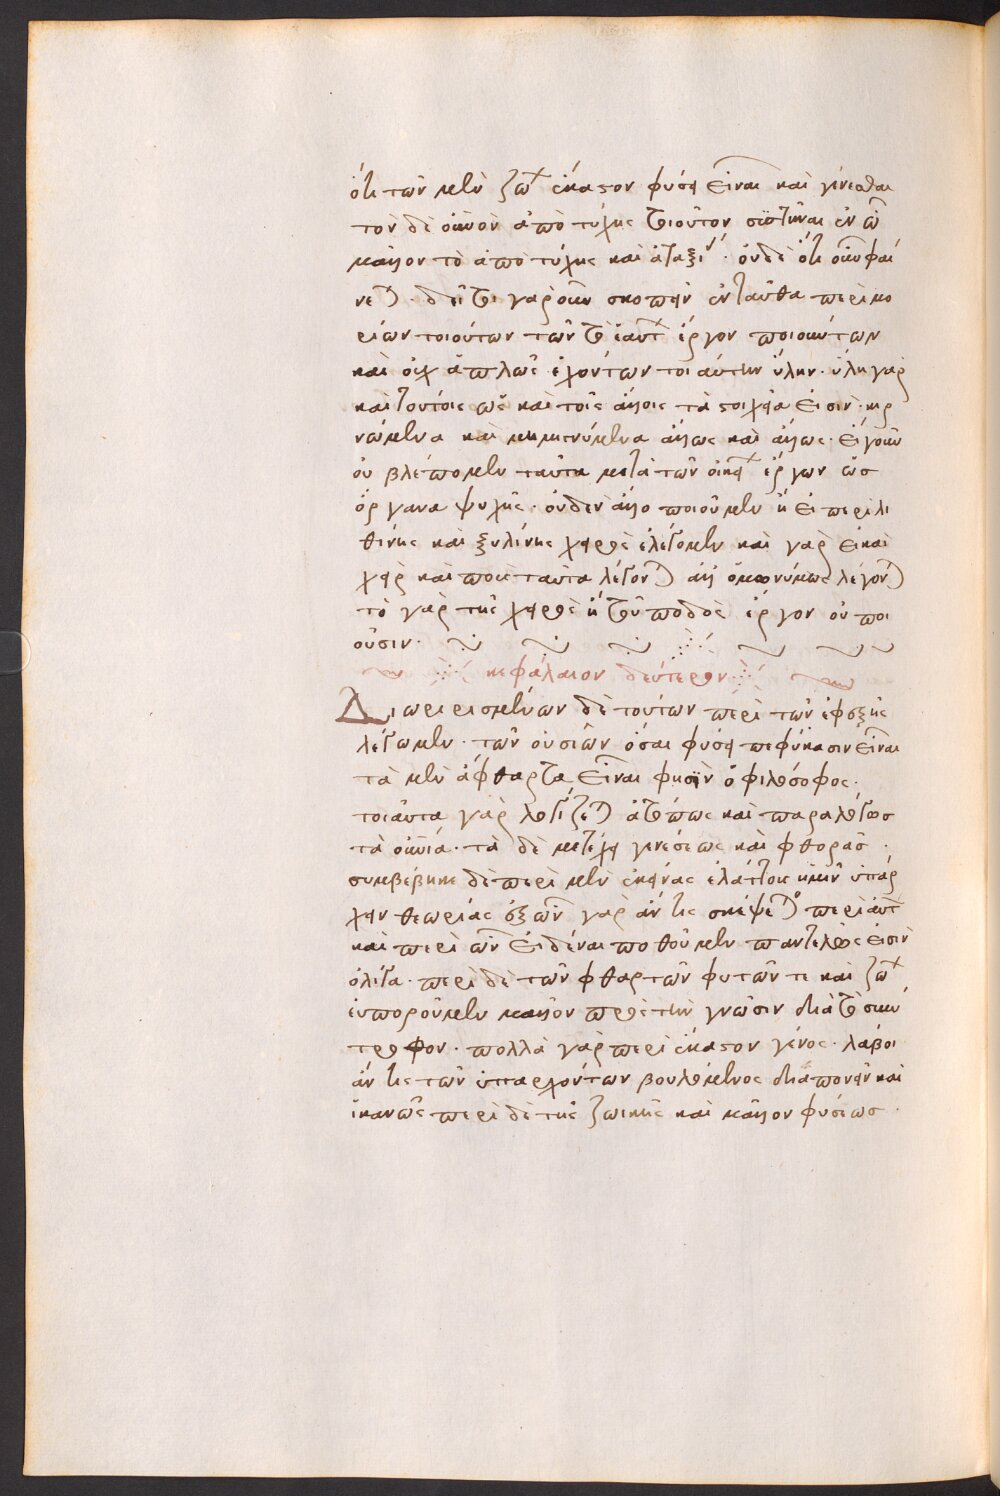 ὅτι τῶν μὲν ζώων ἕκαστον φύσει εἶναι καὶ γίνεσθαι
τὸν δὲ οὐνὸν ἀπὸ τύχης τοιοῦτον συστῆναι ἐν ὧ
μᾶλλον τὸ ἀπὸ τύχης καὶ ἀταξίαν· οὐδὲ ὁτιοῦν φαί
νεται· δεῖ τι γὰρ οὖν σκοπεῖν ἐνταῦθα περὶ μο
ρίων τοιούτων τῶν τὸ ἑαυτῶν ἔργον ποιούντων
καὶ οὐχ ἁπλῶς ἐχόντων τοιαύτην ὕλην· ὕλη γὰρ
καὶ τούτοις ὡς καὶ τοῖς ἄλλοις τὰ στοιχεῖα εἰσὶν· κιρ
νώμενα καὶ μιμιγνύμενα ἄλλως καὶ ἄλλως· εἰ γοῦν
οὐ βλέπομεν ταῦτα μετὰ τῶν οἰκείων ἔργων ὡσ
ὄργανα ψυχῆς· οὐδὲν ἄλλο ποιοῦμεν ἢ εἰ περὶ λι
θίνης καὶ ξυλίνης χειρὸς ἐλέγομεν καὶ γὰρ εἰ καὶ
χεὶρ καὶ ποῦς ταῦτα λέγονται ἀλλ ὁμωνύμως λέγονται
τὸ γὰρ τῆς χειρὸς ἢ τοῦ ποδὸς ἔργον οὐ ποι
οῦσιν·
κεφάλαιον δεύτερον
Διωρισμένων δὲ τούτων περὶ τῶν ἐφεξῆς
λέγωμεν· τῶν οὐσιῶν ὅσαι φύσει πεφύκασιν εἶναι
τὰ μὲν ἄφθαρτα εἶναι φησὶν ὁ φιλόσοφος·
τοιαῦτα γὰρ λογίζεται ἀτόπως καὶ παραλόγωσ
τὰ οὐνιά· τὰ δὲ μετέχει γενέσεως καὶ φθορᾶσ·
συμβέβηκε δὲ περὶ μὲν ἐκείνας ἐλάττους ἡμῖν ὑπάρ
χειν θεωρίας ἐξ ὧν γὰρ ἄν τις σκέψαιτο περὶ αὐτῶν
καὶ περὶ ὧν εἰδέναι ποθοῦμεν παντελῶς εἰσὶν
ὀλίγα· περὶ δὲ τῶν φθαρτῶν φυτῶν τε καὶ ζώων
εὐποροῦμεν μᾶλλον πρὸς τὴν γνῶσιν διὰ τὸ σύν
τροφον· πολλὰ γὰρ περὶ ἕκαστον γένος· λάβοι
ἄν τις τῶν ὑπαρχόντων βουλόμενος διαπονεῖν καὶ
ἱκανῶς περὶ δὲ τῆς ζωικῆς καὶ μᾶλλον φύσεωσ·